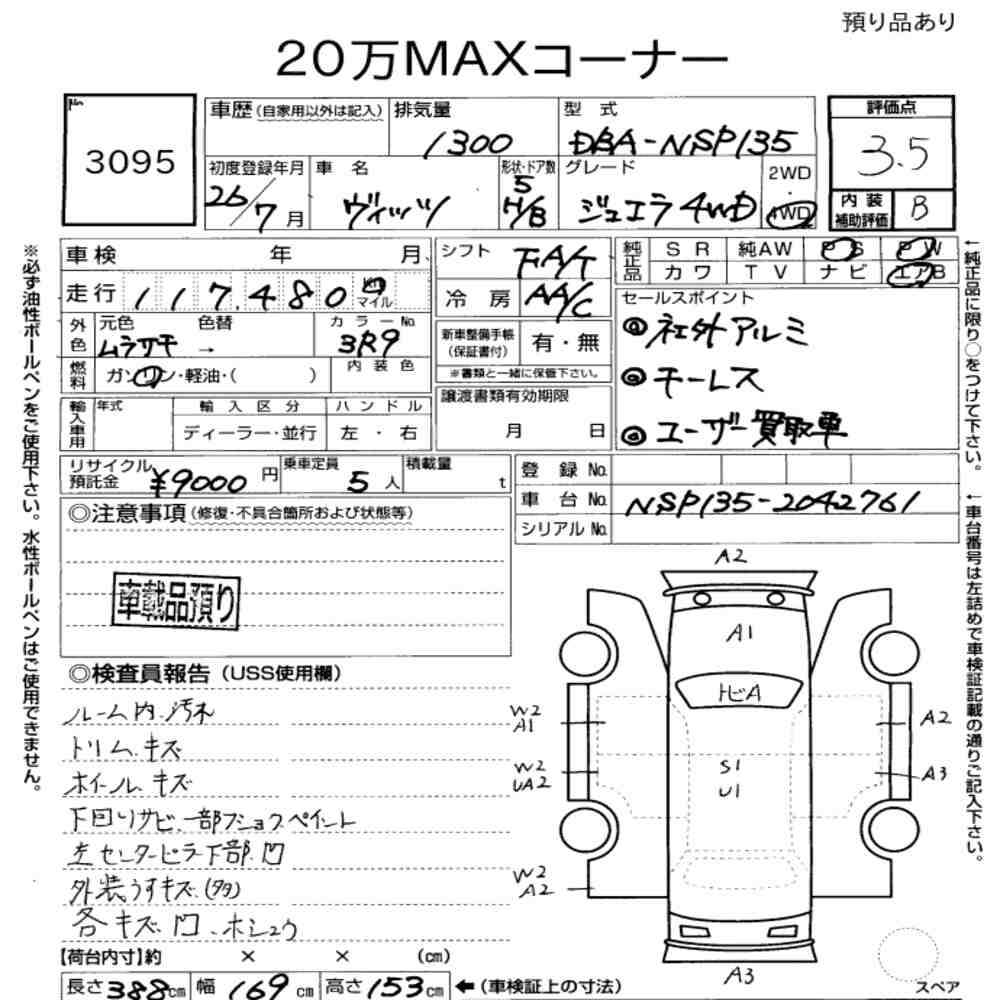 預り品あり
20万MAXコーナー
No 3095
車歴 (自家用以外は記入) 排気量 1300 型式 DBA-NSP135
評価点 3.5
内装補助評価 B
初度登録年月 26/7月 車名 ヴィッツ 形状・ドア数 5 H/B グレード ジュエラ4WD 2WD 4WD
車検 年 月
走行 117,480 km マイル
シフト FA/T
冷房 AA/C
純正品 SR 純AW PS PW
カワ TV ナビ エアB
外色 元色 ムラサキ → 色替 カラーNo. 3R9
燃料 ガソリン・軽油・( ) 内装色
新車整備手帳 (保証書付) 有・無
※書類と一緒に保管下さい。
セールスポイント
◎社外アルミ
◎キーレス
◎ユーザー買取車
輸入車用 年式 輸入区分 ハンドル
ディーラー・並行 左・右
譲渡書類有効期限
月 日
リサイクル預託金 ¥9000円 乗車定員 5人 積載量 t
登録No.
車台No. NSP135-2042761
シリアルNo.
◎注意事項 (修復・不具合箇所および状態等)
車載品預り
◎検査員報告 (USS使用欄)
ルーム内.汚れ
トリム.キズ
ホイール.キズ
下回りサビ.一部フショクペイント
左センターピラー下部.凹
外装うすキズ.(多)
各キズ.凹.ホシュウ
【荷台内寸】約 × × (cm)
長さ388cm 幅169cm 高さ153cm ←(車検証上の寸法)
A2
A1
トビA
W2
A1
A2
W2
UA2
S1
U1
A3
W2
A2
A3
スペア
※必ず油性ボールペンをご使用下さい。水性ボールペンはご使用できません。
←純正品に限り○をつけて下さい。
←車台番号は左詰めで車検証記載の通りご記入下さい。